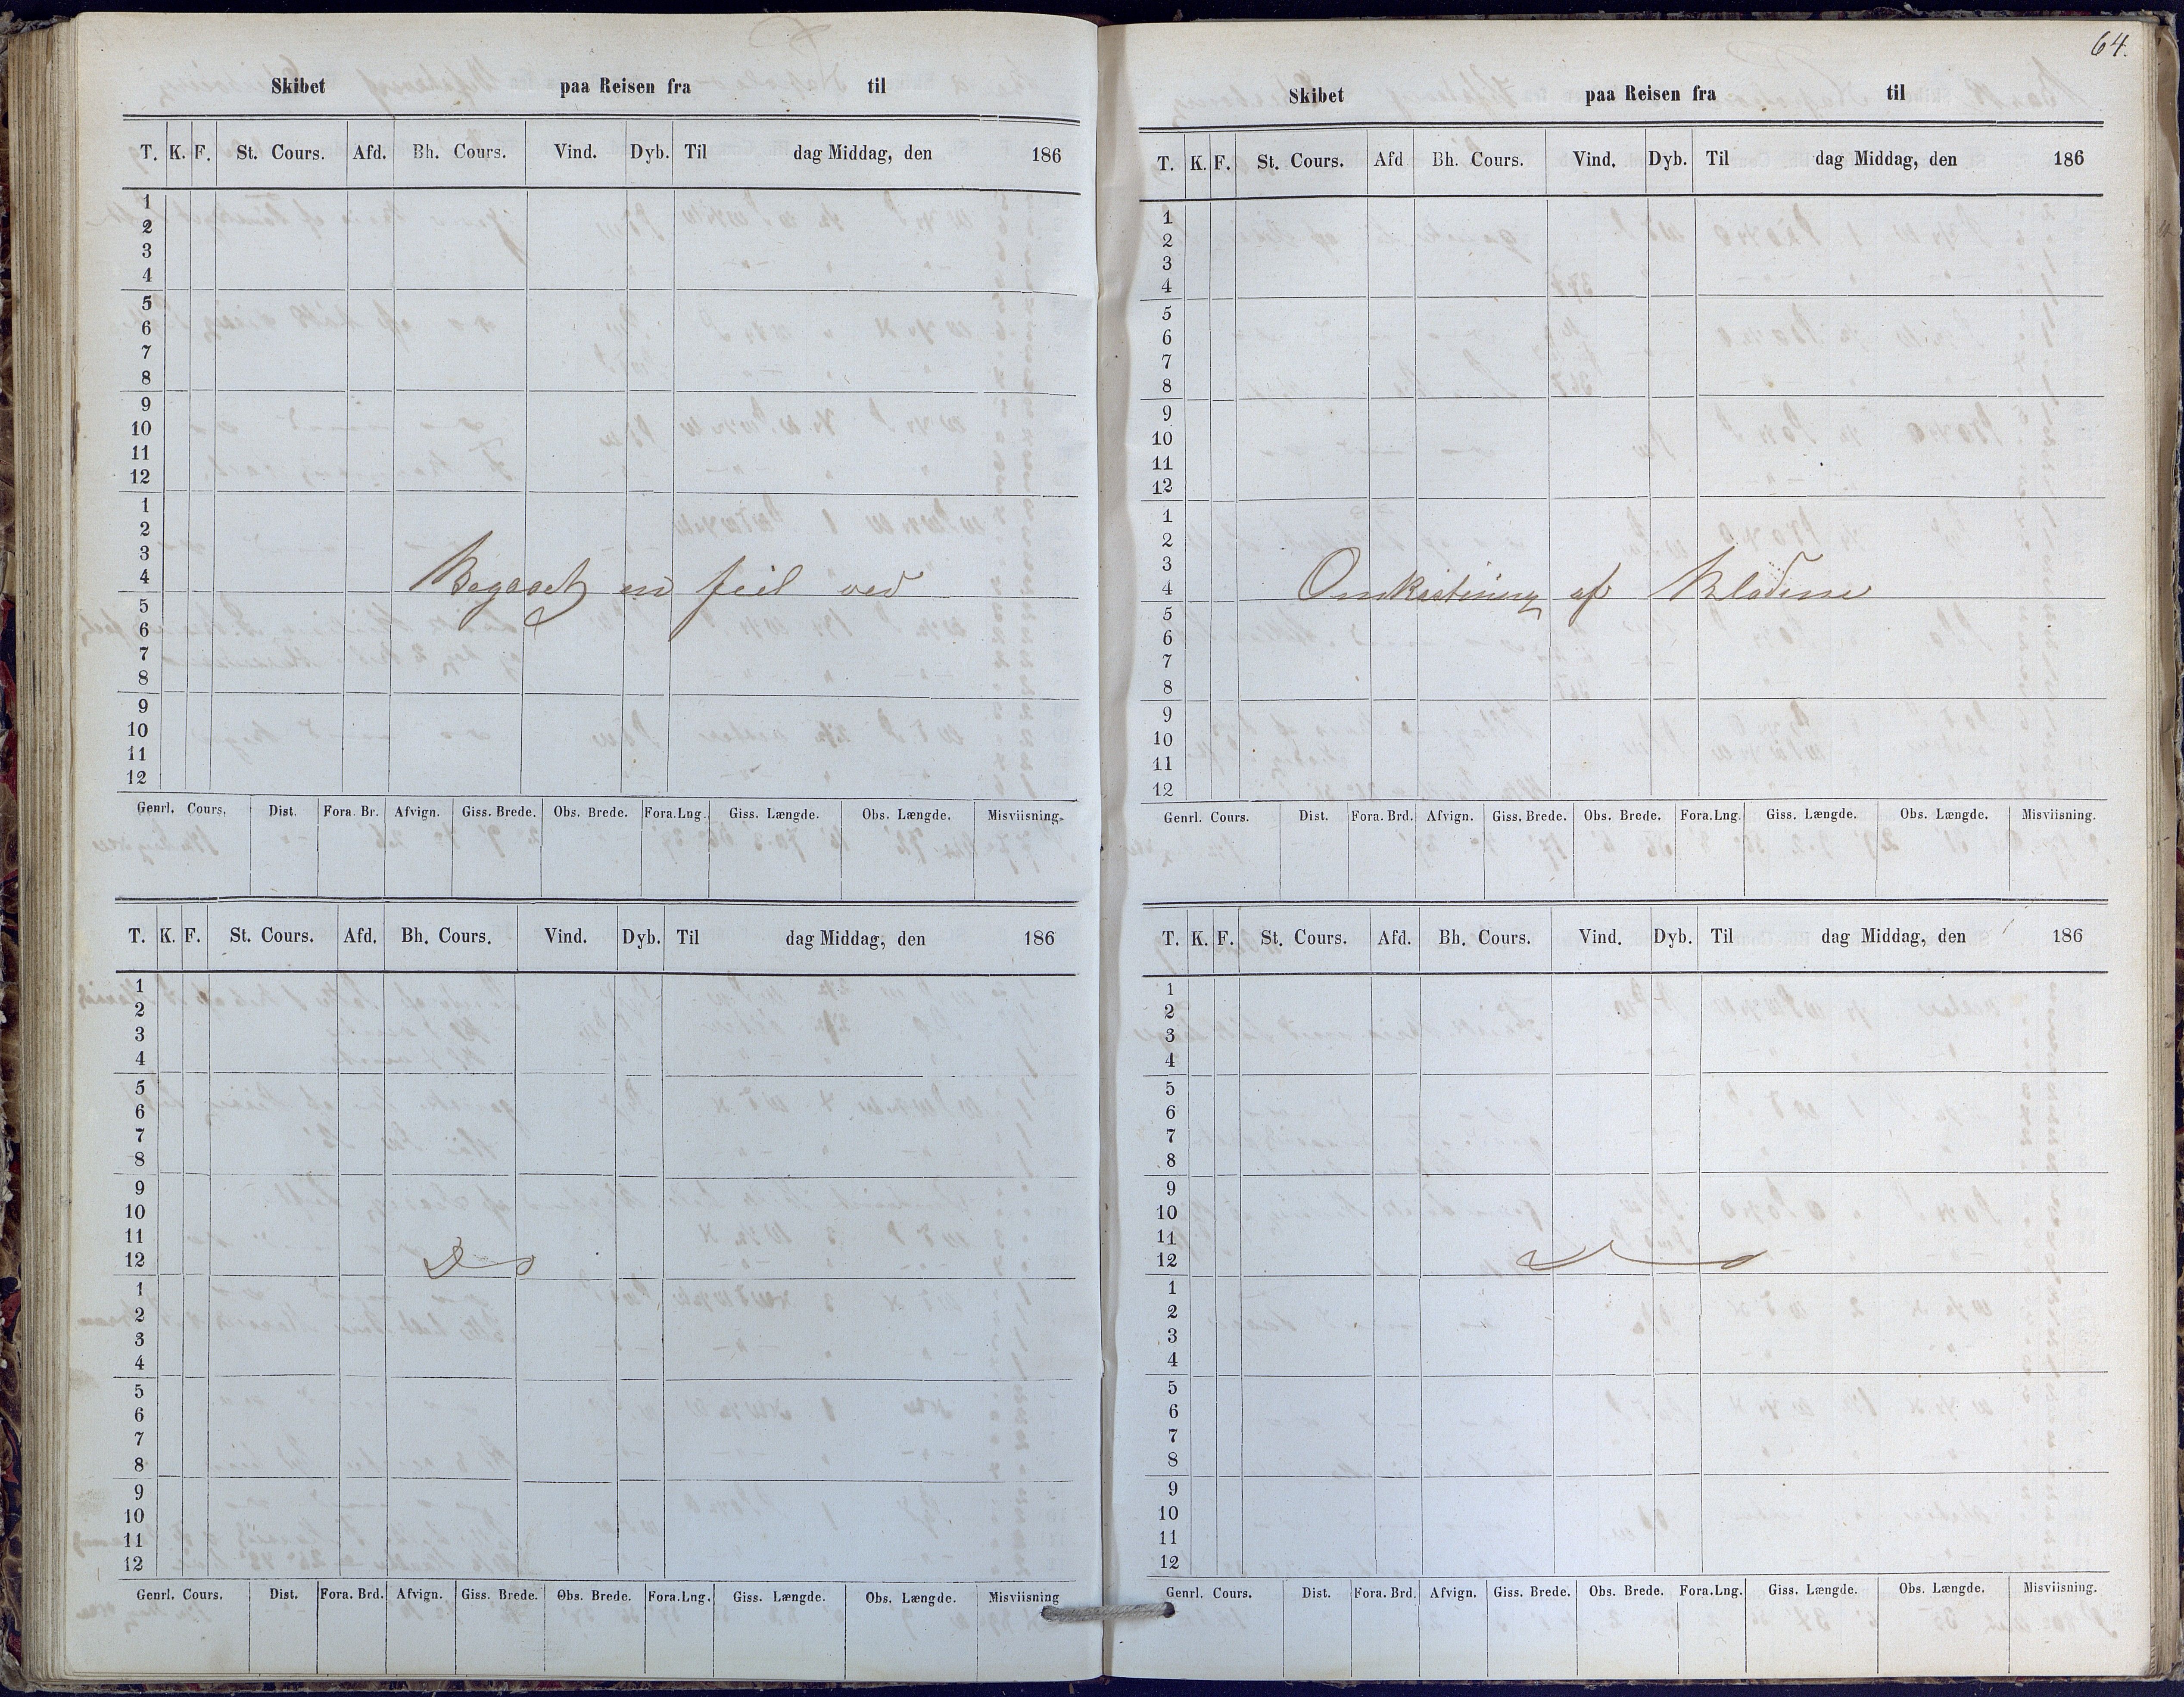 Skibet paa Reisen fra til
T. K. F. St. Cours. Afd. Bh. Cours. Vind. Dyb. Til dag Middag, den 186
1
2
3
4
5
6
7
8
9
10
11
12
1
2
3
4
Begaaet en feil ved
5
6
7
8
9
10
11
12
Genrl. Cours. Dist. Fora. Br. Afvign. Giss. Brede. Obs. Brede. Fora.Lng. Giss. Længde. Obs. Længde. Misviisning.
T. K. F. St. Cours. Afd. Bh. Cours. Vind. Dyb. Til dag Middag, den 186
1
2
3
4
5
6
7
8
9
10
11
12
Do
1
2
3
4
5
6
7
8
9
10
11
12
Genrl. Cours. Dist. Fora. Brd. Afvign. Giss. Brede. Obs. Brede. Fora.Lng. Giss. Længde. Obs. Længde. Misviisning
64.
Skibet paa Reisen fra til
T. K. F. St. Cours. Afd Bh. Cours. Vind. Dyb. Til dag Middag, den 186
1
2
3
4
5
6
7
8
9
10
11
12
1
2
3
4
Omkastning af Bladene
5
6
7
8
9
10
11
12
Genrl. Cours. Dist. Fora. Brd. Afvign. Giss. Brede. Obs. Brede. Fora.Lng. Giss. Længde. Obs. Længde. Misviisning.
T. K. F. St. Cours. Afd. Bh. Cours. Vind. Dyb. Til dag Middag, den 186
1
2
3
4
5
6
7
8
9
10
11
12
1
2
3
4
5
6
7
8
9
10
11
12
Genrl. Cours. Dist. Fora. Brd. Afvign. Giss. Brede. Obs. Brede. Fora.Lng. Giss. Længde. Obs. Længde. Misviisning.